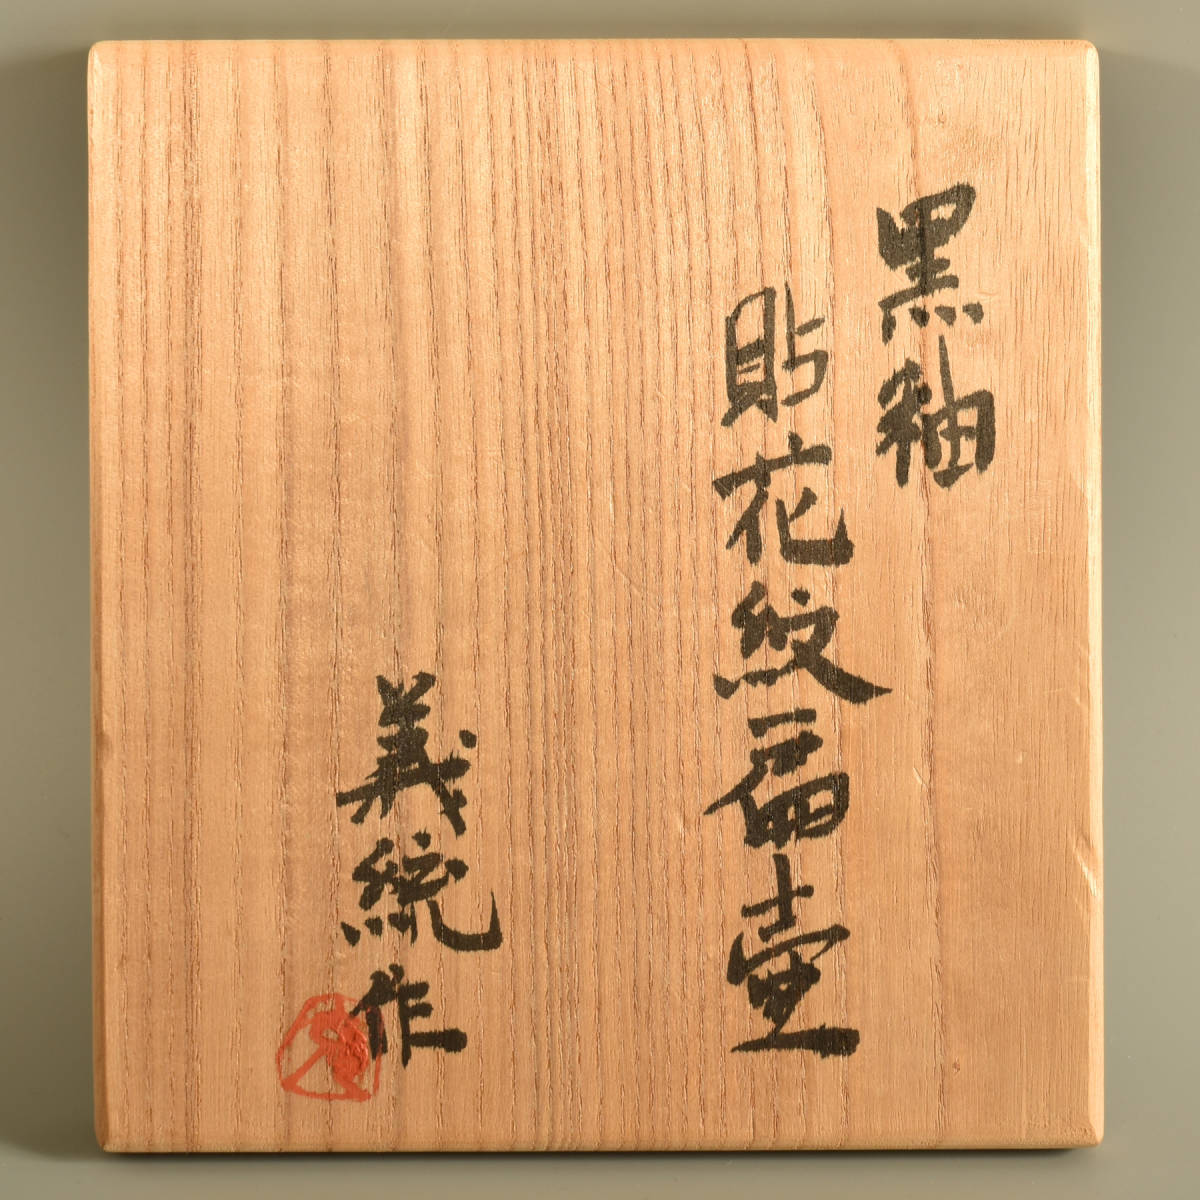 黒釉
貼花紋扁壷
義統作